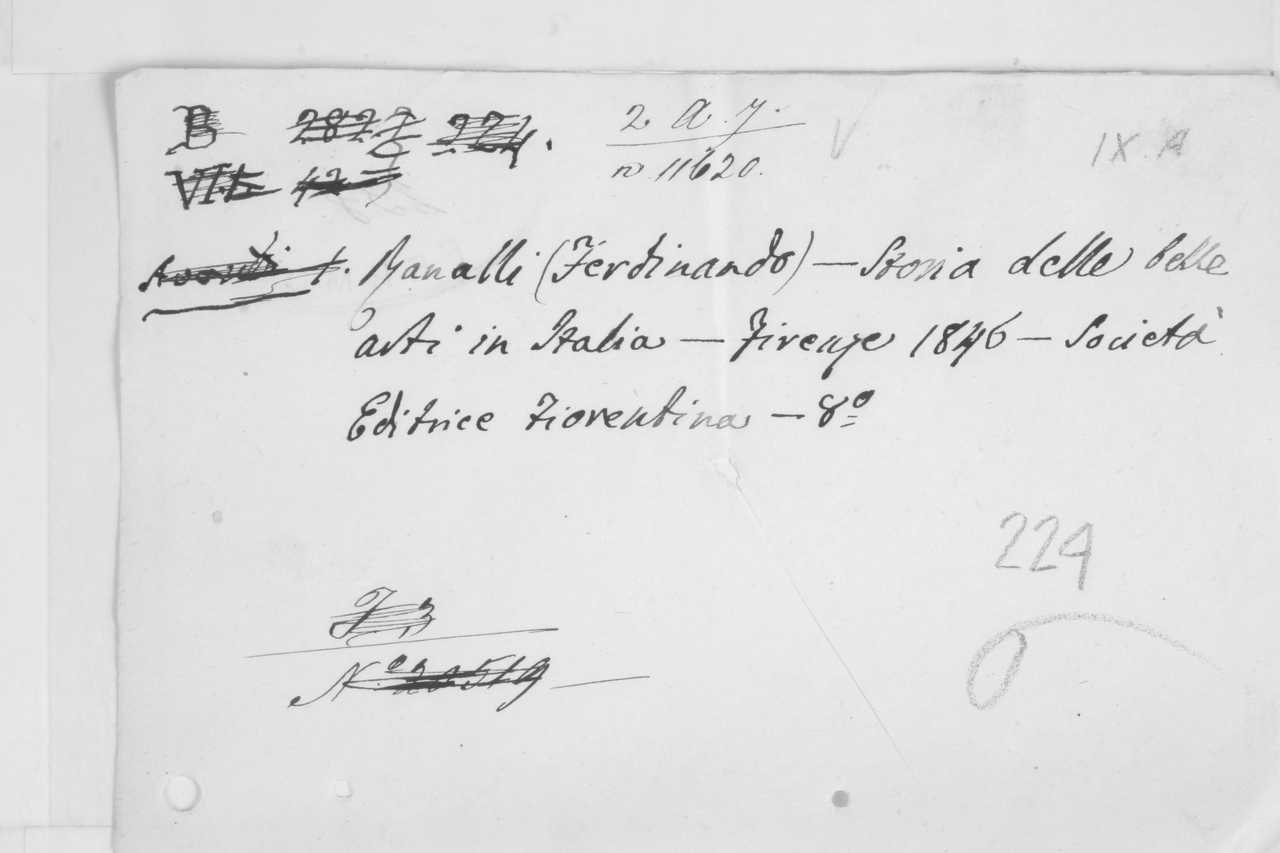 B 2827 224.
2 a. 7.
VII.
n.º 11620.
IX. A
Ranalli (Ferdinando) — Storia delle belle
arti in Italia — Firenze 1846 — Società
Editrice Fiorentina — 8º
224
N.º 22519